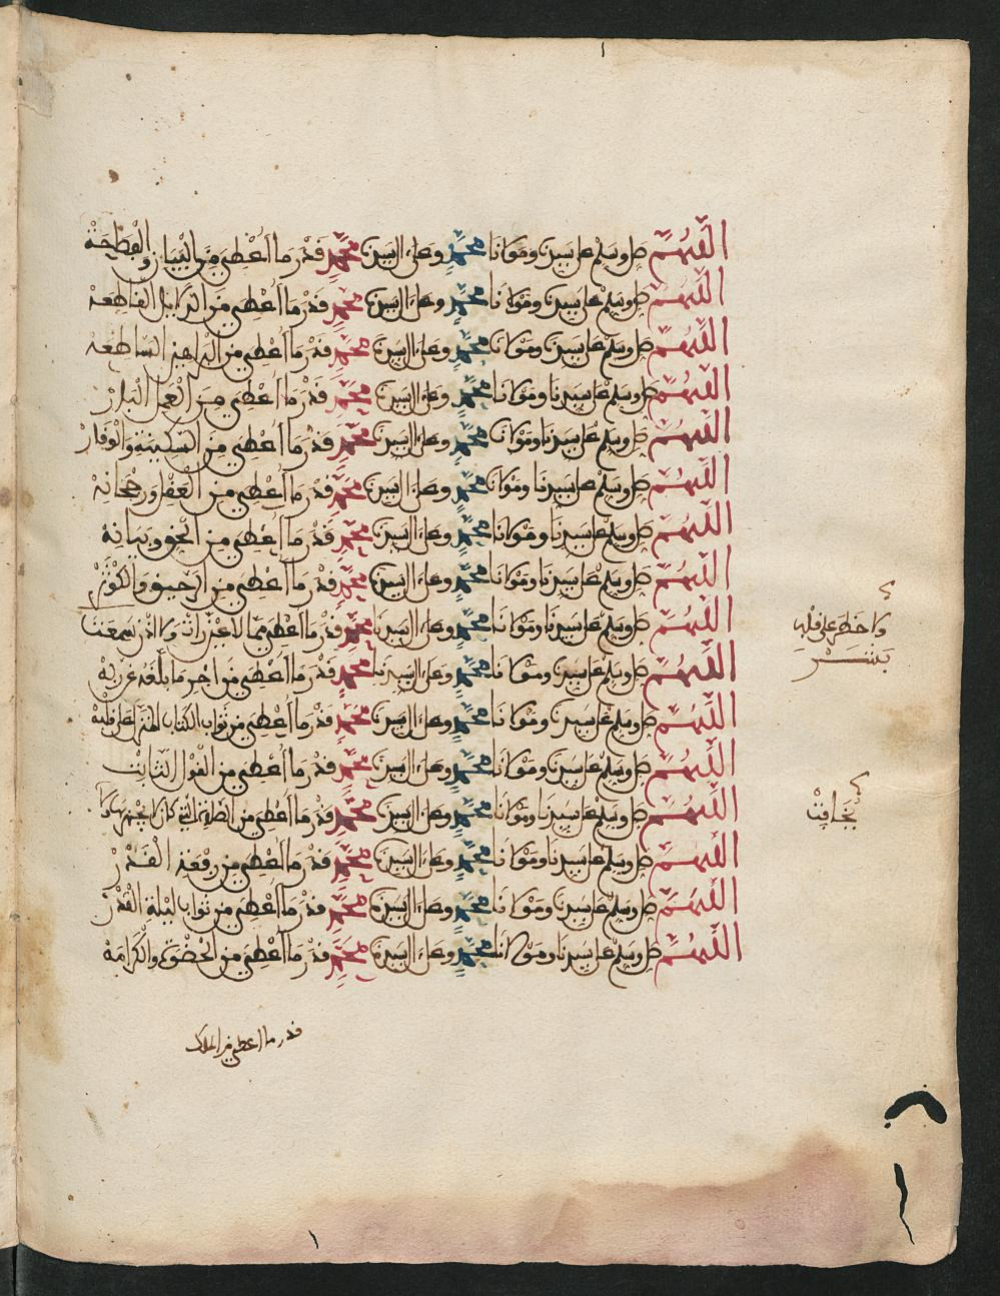 اللهم صل وسلم على سيدنا ومولانا محمد وعلى ال سيدنا محمد قدر ما اعطي من البيان والفصاحة
اللهم صل وسلم على سيدنا ومولانا محمد وعلى ال سيدنا محمد قدر ما اعطي من الدلايل القاطعة
اللهم صل وسلم على سيدنا ومولانا محمد وعلى ال سيدنا محمد قدر ما اعطي من البراهين الساطعة
اللهم صل وسلم على سيدنا ومولانا محمد وعلى ال سيدنا محمد قدر ما اعطي من
اللهم صل وسلم على سيدنا ومولانا محمد وعلى ال سيدنا محمد قدر ما اعطي من السكينة والوقار
اللهم صل وسلم على سيدنا ومولانا محمد وعلى ال سيدنا محمد قدر ما اعطي من العقل ورجحانه
اللهم صل وسلم على سيدنا ومولانا محمد وعلى ال سيدنا محمد قدر ما اعطي من الحق وبيانه
اللهم صل وسلم على سيدنا ومولانا محمد وعلى ال سيدنا محمد قدر ما اعطي من الرحيق والكوثر
اللهم صل وسلم على سيدنا ومولانا محمد وعلى ال سيدنا محمد قدر ما اعطي مما لا عين رات ولا اذن سمعت
ولا خطر على قلب
بشر
اللهم صل وسلم على سيدنا ومولانا محمد وعلى ال سيدنا محمد قدر ما اعطي من اجر ما بلغه عن ربه
اللهم صل وسلم على سيدنا ومولانا محمد وعلى ال سيدنا محمد قدر ما اعطي من ثواب الكتاب المنزل على قلبه
اللهم صل وسلم على سيدنا ومولانا محمد وعلى ال سيدنا محمد قدر ما اعطي من القول الثابت
اللهم صل وسلم على سيدنا ومولانا محمد وعلى ال سيدنا محمد قدر ما اعطي من الصلاة التي كان لا يجهر بها ولا
يخافت
اللهم صل وسلم على سيدنا ومولانا محمد وعلى ال سيدنا محمد قدر ما اعطي من رفعة القدر
اللهم صل وسلم على سيدنا ومولانا محمد وعلى ال سيدنا محمد قدر ما اعطي من ثواب ليلة القدر
اللهم صل وسلم على سيدنا ومولانا محمد وعلى ال سيدنا محمد قدر ما اعطي من الحضوة والكرامة
قدر ما اعطي من الملك